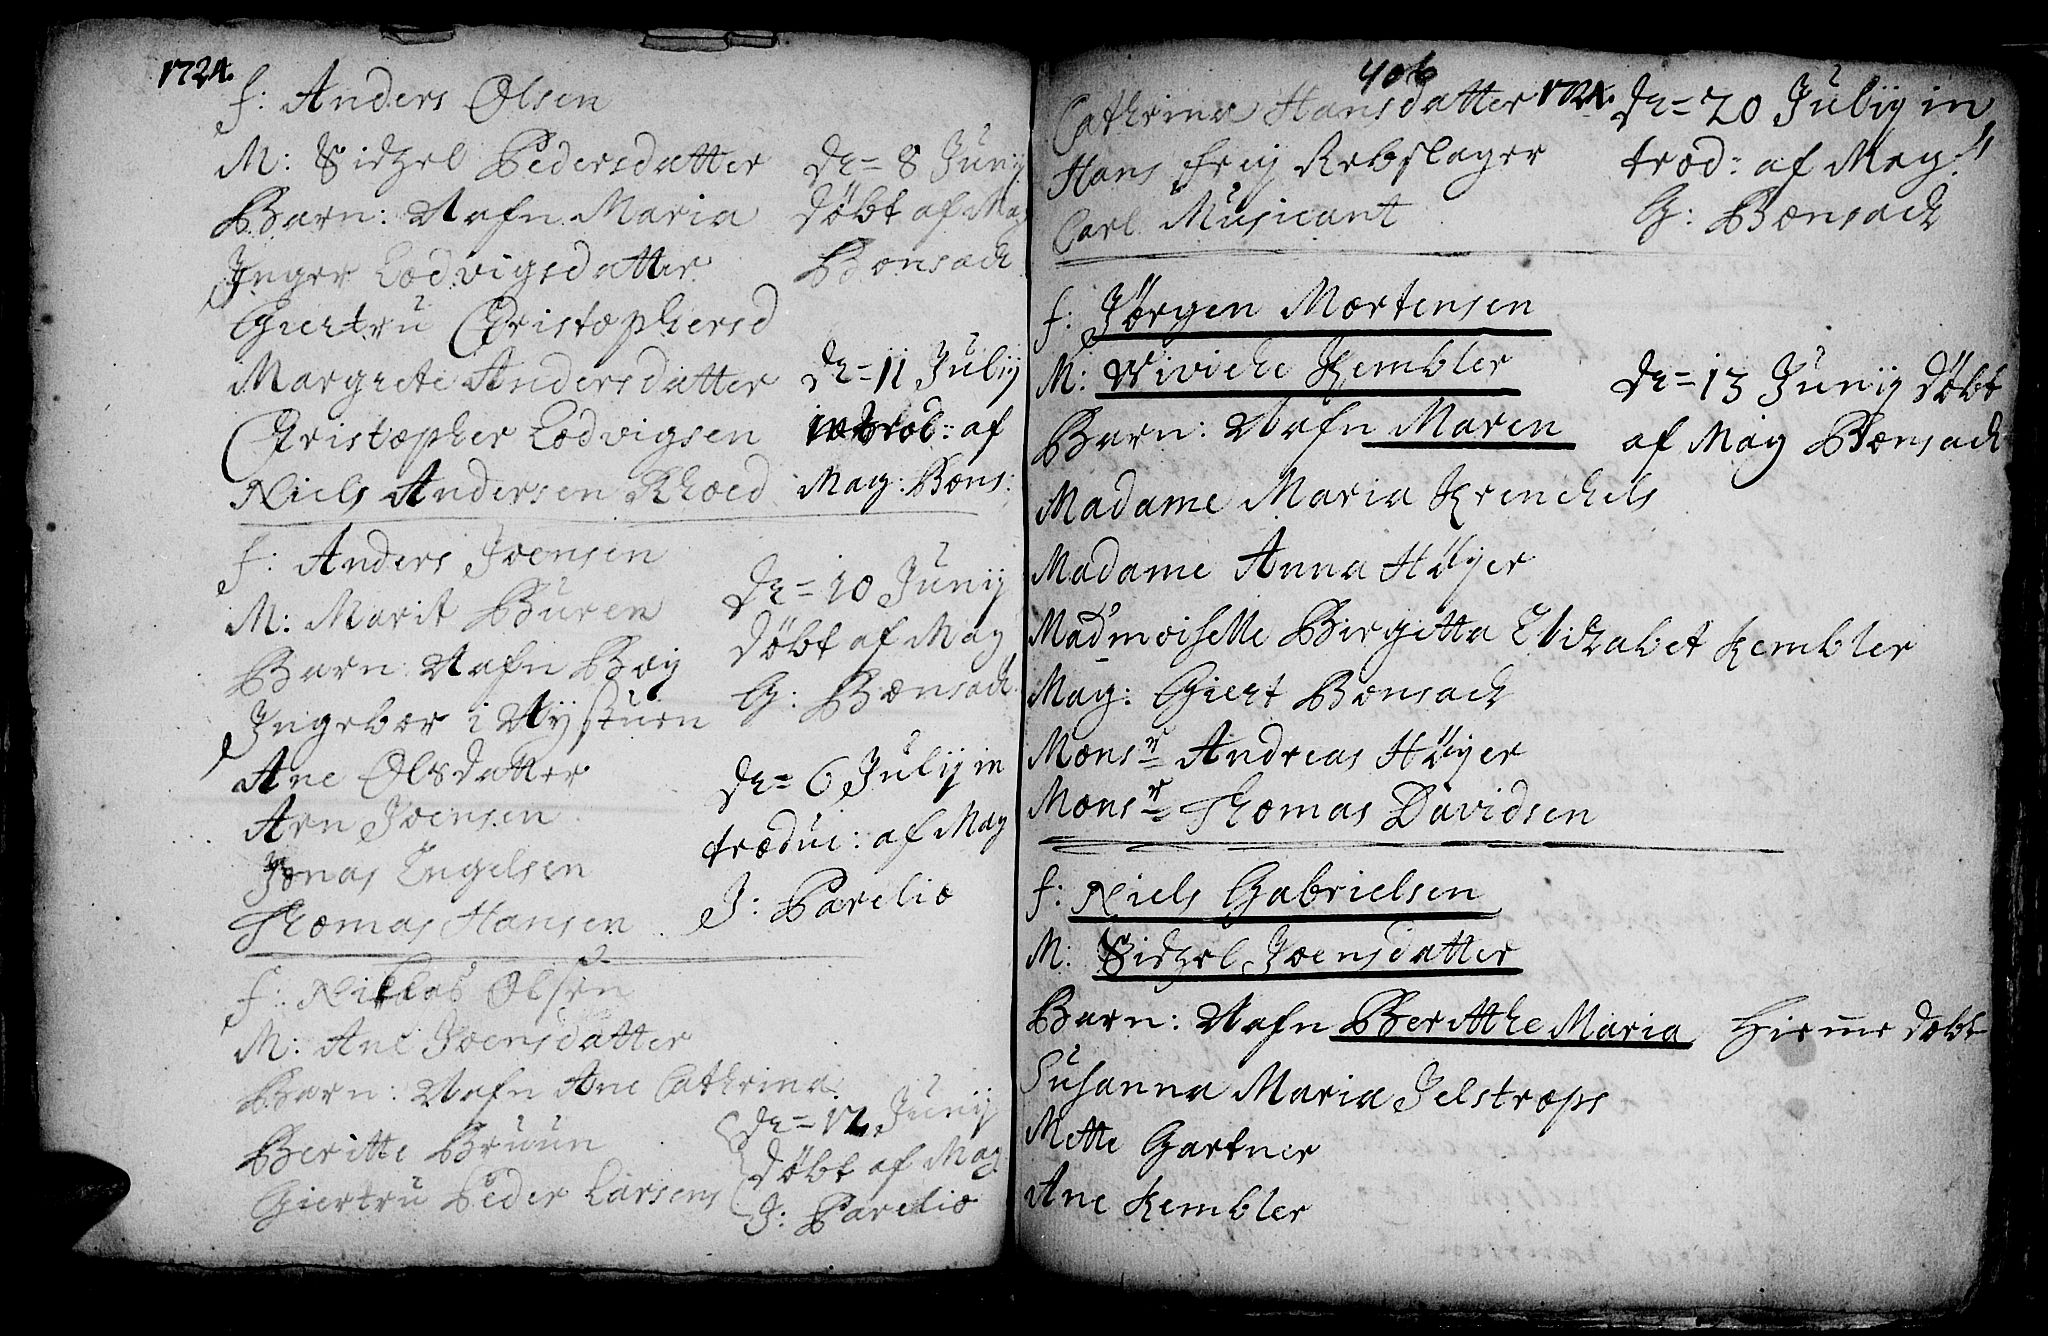 1724.
f: Anders Olsen
M: Sidzel Pedersdatter
Barn: Nafn Maria
Inger Lodvigsdatter
Giertru Christophersd
Margrete Andersdatter
Christopher Lodvigsen
Niels Andersen Rhoed
De= 8 Junij
döbt af Mag
Bonsach
De= 11 Julij
introd: af
Mag: Bons:
f: Anders Joensen
M: Marit Buren
Barn: Nafn Boy
Ingebor i Nystuen
Ane Olsdatter
Arn Joensen
Jonas Engelsen
Thomas Hansen
De= 10 Junij
döbt af Mag
G: Bonsach
De= 6 Julij in
troduc: af Mag
J: Parelio
f: Niklas Olsen
M: Ane Joensdatter
Barn: Nafn Ane Cathrina
Beritte Bruun
Giertru Peder Larsens
De= 12 Junij
döbt af Mag
J: Parelio
406
1724.
Cathrina Hansdatter
Hans Frey Rebslager
Carl Musicant
De= 20 Julij in
trod: af Mag:
G: Bonsach
f: Jörgen Mortensen
M: Wiviche Kembler
Barn: Nafn Maren
Madame Maria Krenchels
Madame Anna Höyer
Madmoiselle Birgitta Elizabet Kembler
Mag: Giert Bonsach
Monsr Andreas Höyer
Monsr Thomas Davidsen
De= 13 Junij döbt
af Mag Bonsach
f: Niels Gabrielsen
M: Sidzel Joensdatter
Barn: Nafn Beritthe Maria hieme döbt
Susanna Maria Jelstrops
Mette Gartner
Ane Kembler